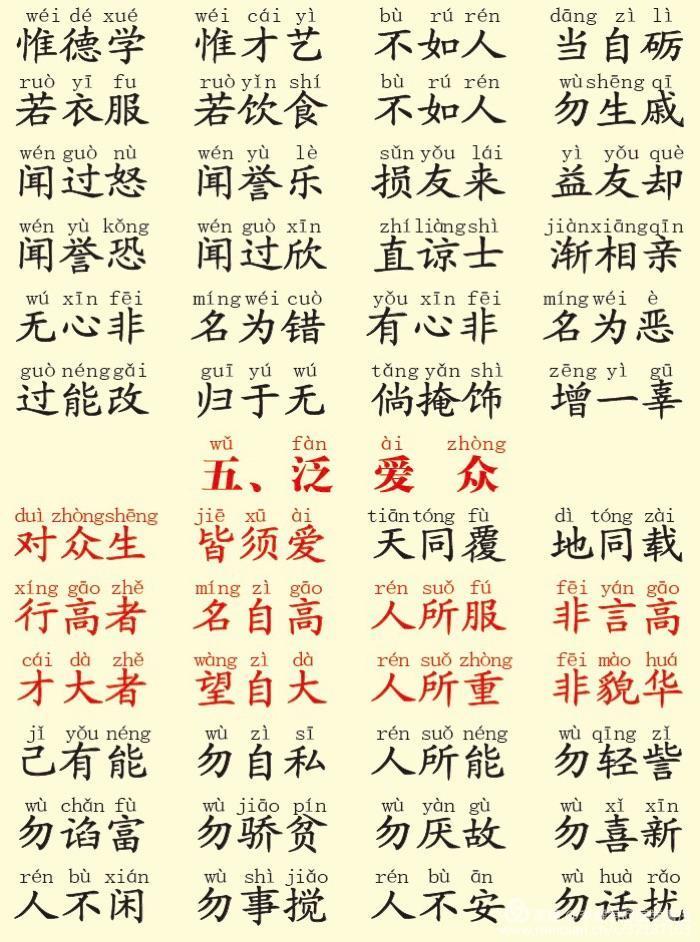 wéi dé xué wéi cái yì bù rú rén dāng zì lì
惟德学 惟才艺 不如人 当自砺
ruò yī fu ruò yǐn shí bù rú rén wù shēng qī
若衣服 若饮食 不如人 勿生戚
wén guò nù wén yù lè sǔn yǒu lái yì yǒu què
闻过怒 闻誉乐 损友来 益友却
wén yù kǒng wén guò xīn zhí liàng shì jiàn xiāng qīn
闻誉恐 闻过欣 直谅士 渐相亲
wú xīn fēi míng wéi cuò yǒu xīn fēi míng wéi è
无心非 名为错 有心非 名为恶
guò néng gǎi guī yú wú tǎng yǎn shì zēng yì gū
过能改 归于无 倘掩饰 增一辜
wǔ fàn ài zhòng
五、泛爱众
duì zhòng shēng jiē xū ài tiān tóng fù dì tóng zài
对众生 皆须爱 天同覆 地同载
xíng gāo zhě míng zì gāo rén suǒ fú fēi yán gāo
行高者 名自高 人所服 非言高
cái dà zhě wàng zì dà rén suǒ zhòng fēi mào huá
才大者 望自大 人所重 非貌华
jǐ yǒu néng wù zì sī rén suǒ néng wù qīng zǐ
己有能 勿自私 人所能 勿轻訾
wù chǎn fù wù jiāo pín wù yàn gù wù xǐ xīn
勿谄富 勿骄贫 勿厌故 勿喜新
rén bù xián wù shì jiǎo rén bù ān wù huà rǎo
人不闲 勿事搅 人不安 勿话扰